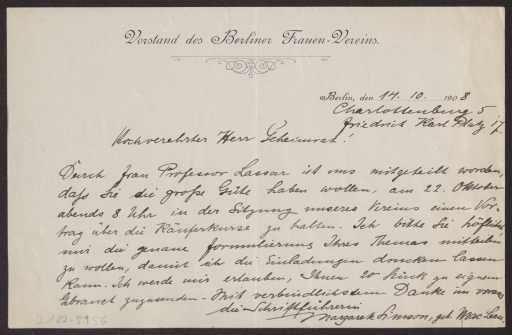 Vorstand des Berliner Frauen-Vereins.
Berlin, den 14. 10. 1908
Charlottenburg 5
Friedrich Karl Platz 17
Hochverehrter Herr Geheimrat!
Durch Frau Professor Lassar ist uns mitgeteilt worden,
daß Sie die große Güte haben wollen, am 22. Oktober
abends 8 Uhr in der Sitzung unseres Vereins einen Vor-
trag über die Käuferkurse zu halten. Ich bitte Sie höflichst
mir die genaue Formulierung Ihres Themas mitteilen
zu wollen, damit ich die Einladungen drucken lassen
kann. Ich werde mir erlauben, Ihnen 20 Stück zu eignem
Gebrauch zuzusenden. Mit verbindlichstem Danke im voraus
die Schriftführerin
Margarete Simson, geb.